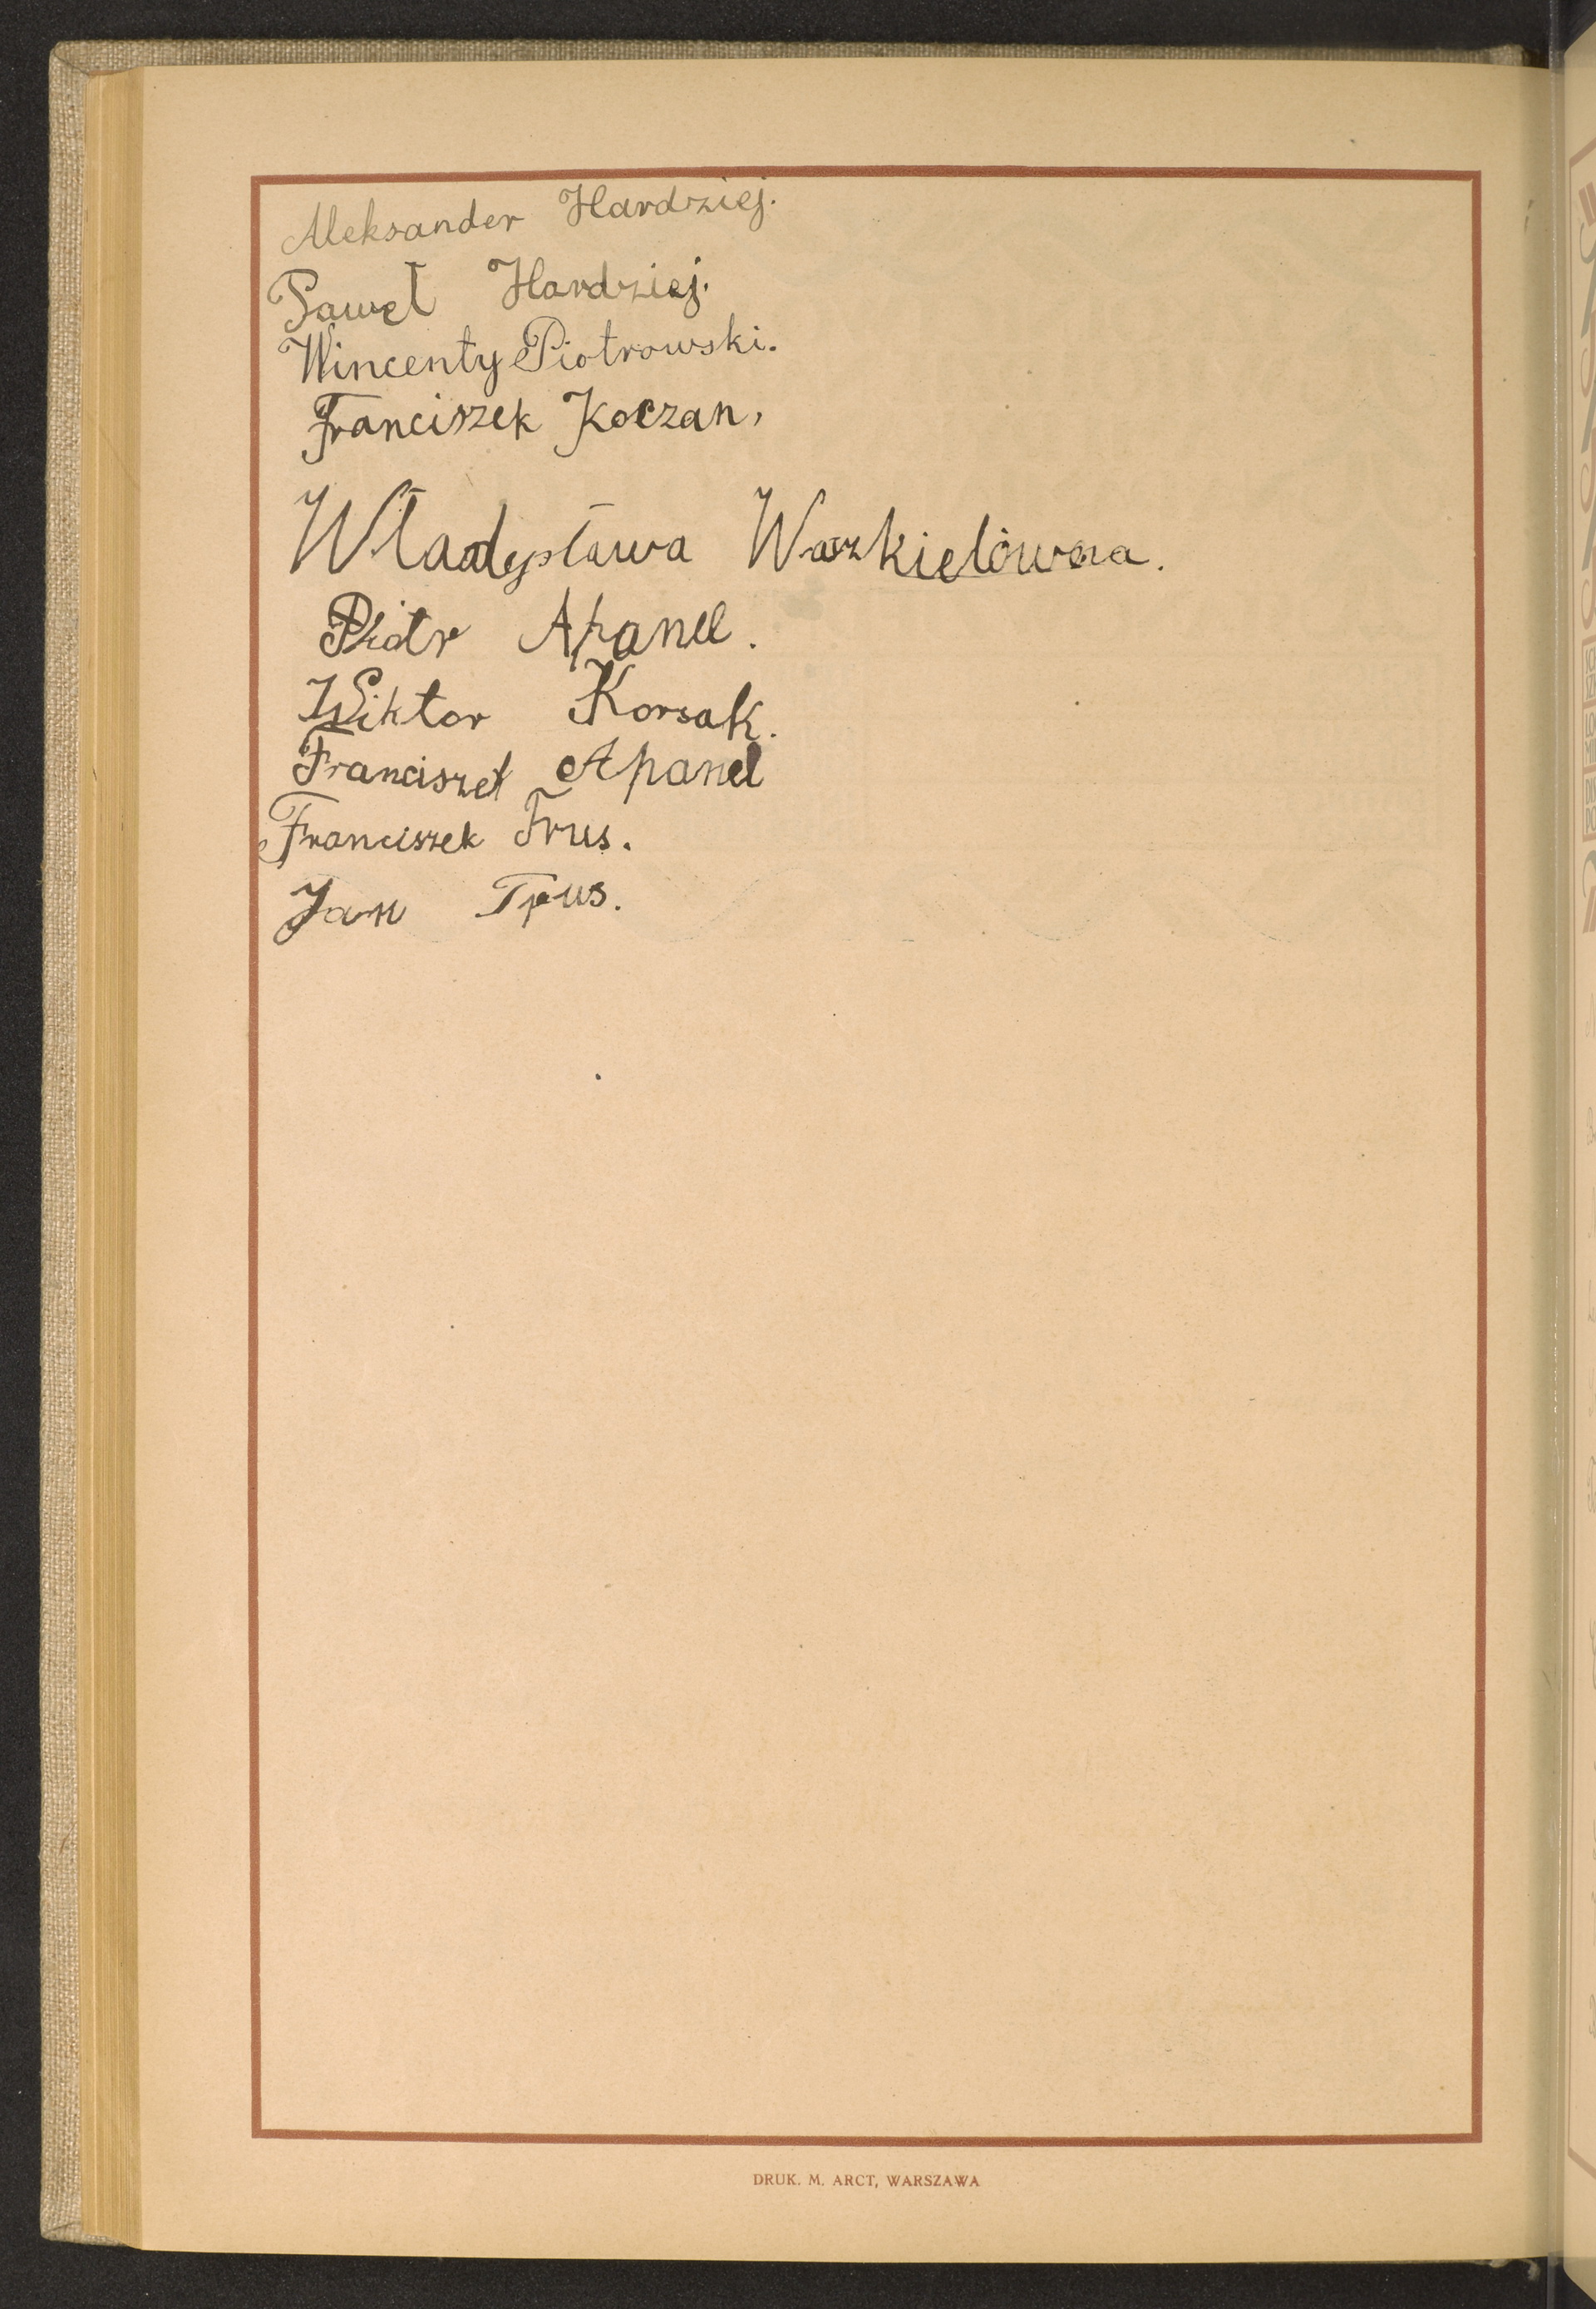 Aleksander Hardziej.
Paweł Hardziej.
Wincenty Piotrowski.
Franciszek Koczan,
Władysława Waszkielówna.
Piotr Apanel.
Wiktor Korsak.
Franciszek Apanel
Franciszek Trus.
Jan Trus.
DRUK. M. ARCT, WARSZAWA